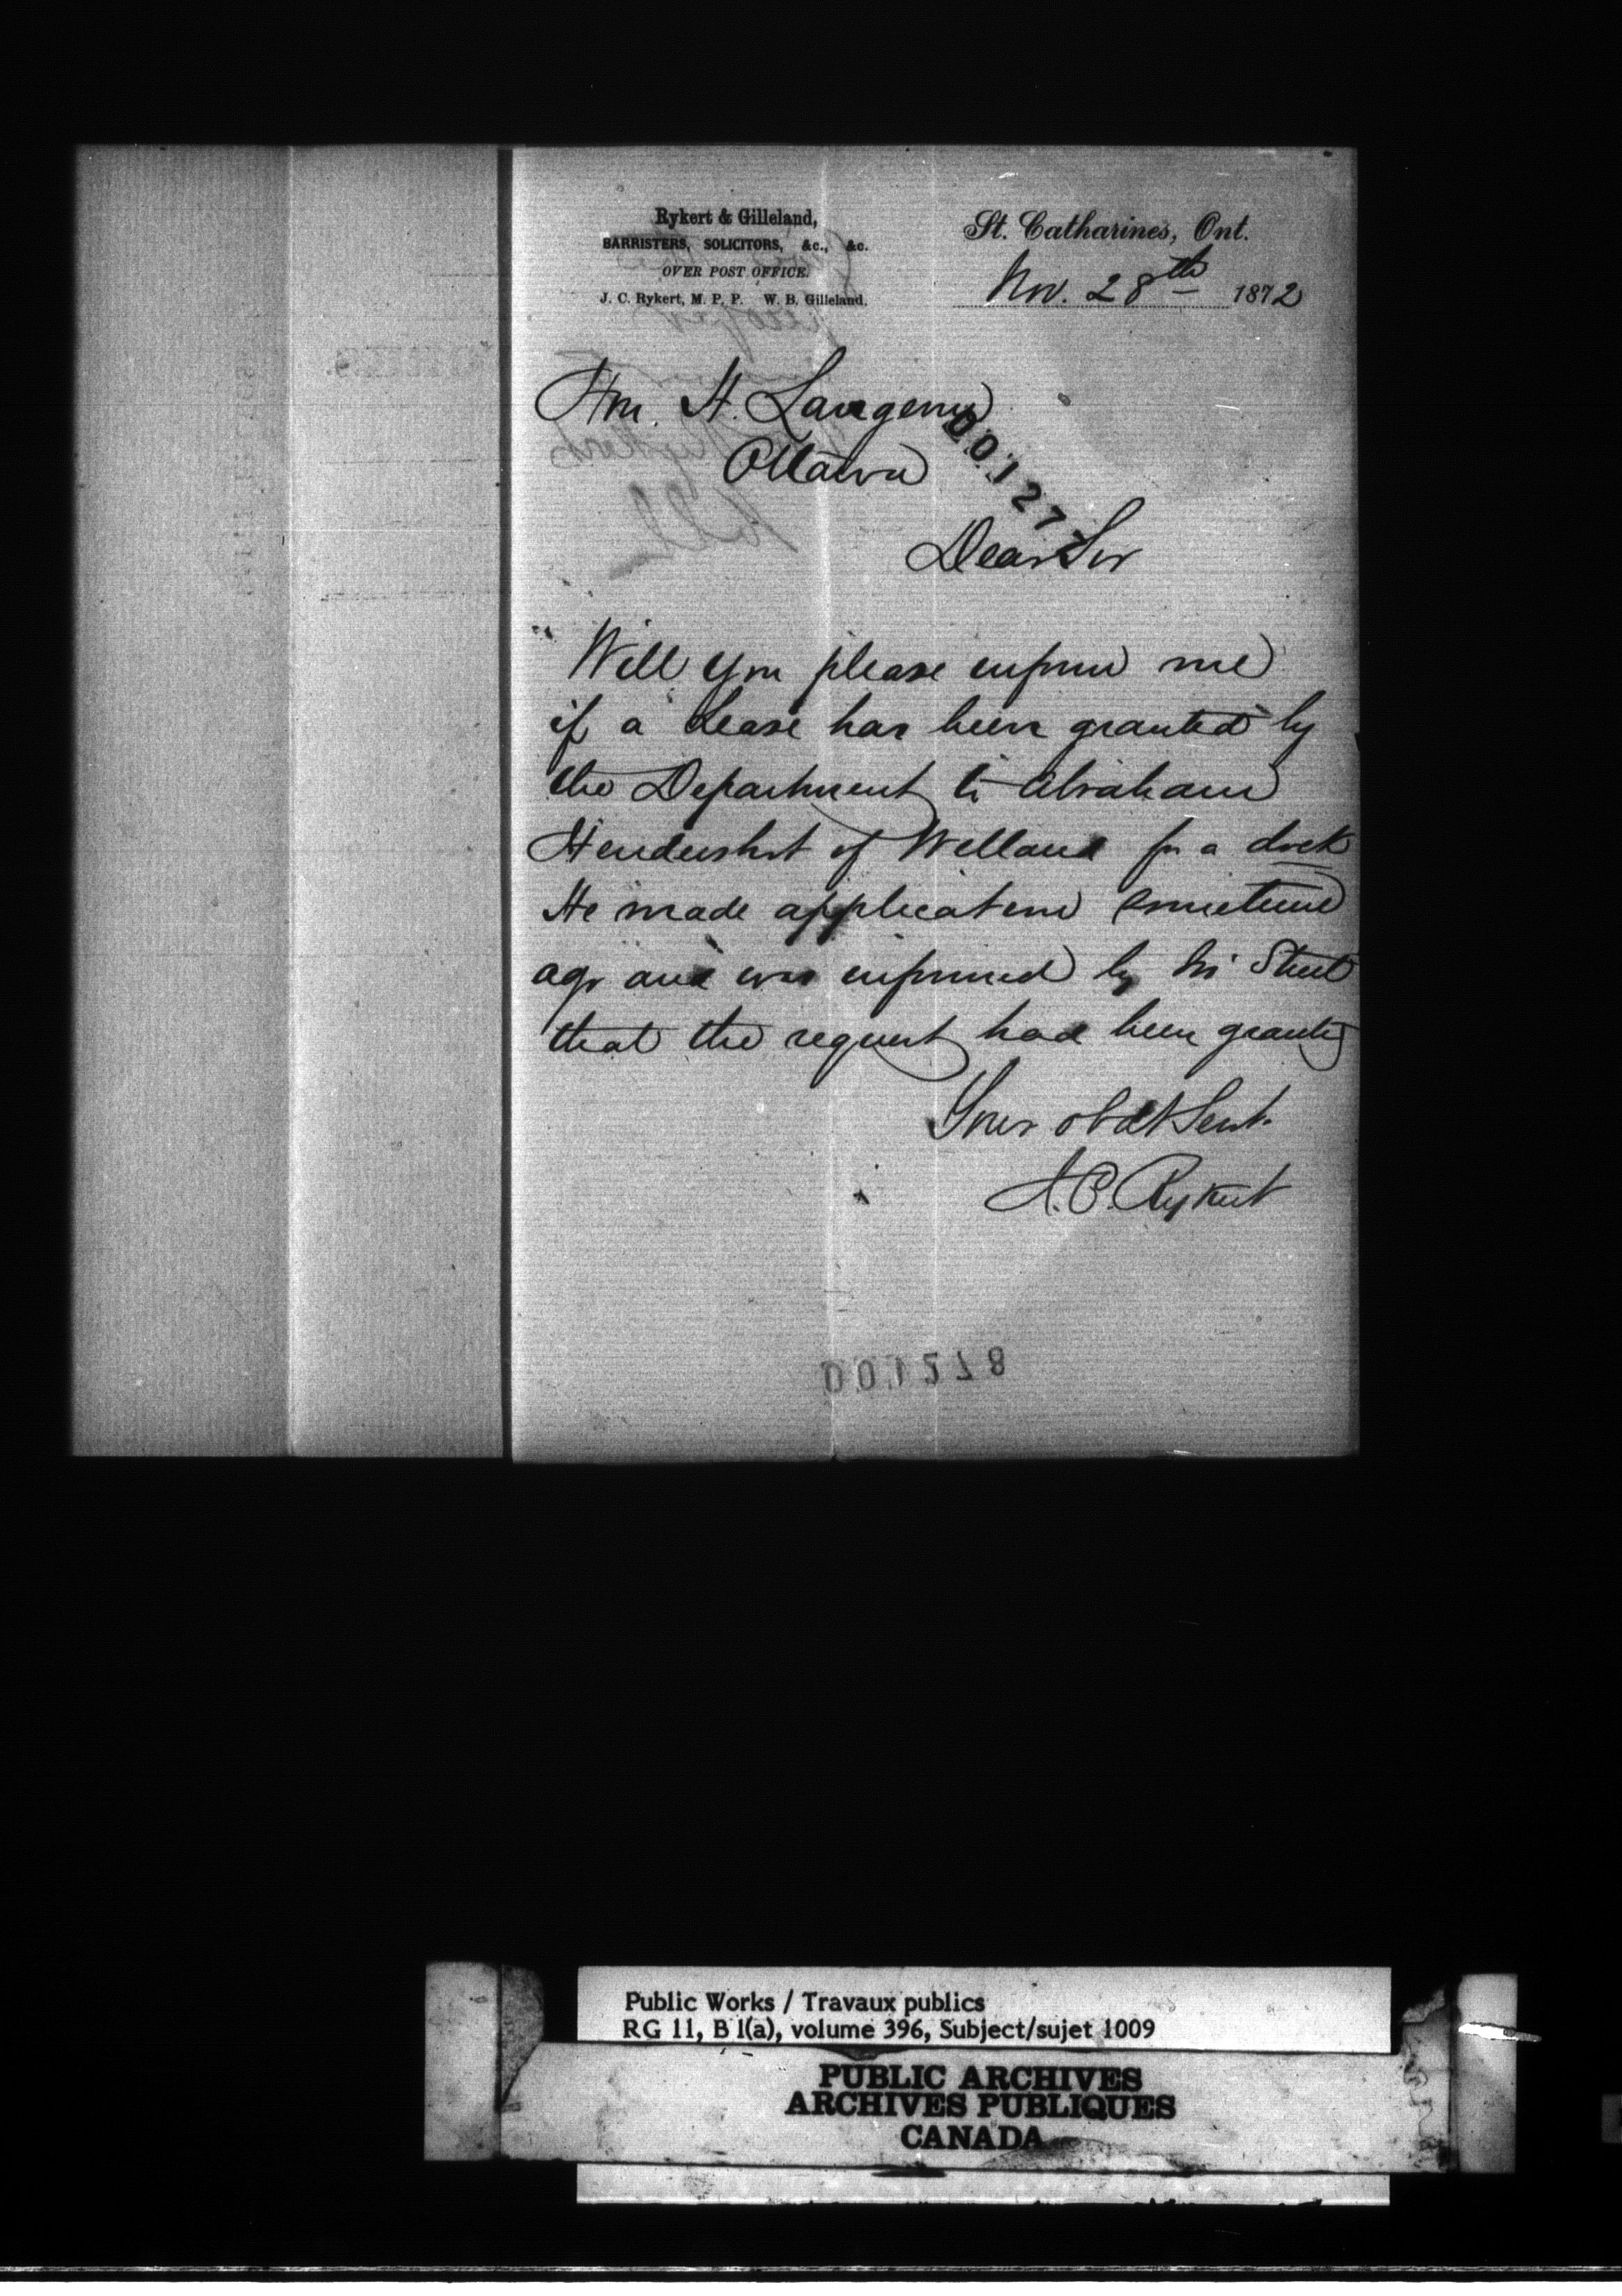 Rykert & Gilleland,
BARRISTERS, SOLICITORS, &c., &c.
OVER POST OFFICE.
J. C. Rykert, M. P. P. W. B. Gilleland.
St. Catharines, Ont.
Nov. 28th 1872
Hon. H. Langevin
Ottawa
00127
Dear Sir
Will you please inform me
if a Lease has been granted by
the Department to Abraham
Hendershot of Welland for a dock
He made application sometime
ago and was informed by Mr Street
that the request had been granted
Your obdt Servt.
J. C. Rykert
001278
Public Works / Travaux publics
RG 11, B 1(a), volume 396, Subject/sujet 1009
PUBLIC ARCHIVES
ARCHIVES PUBLIQUES
CANADA